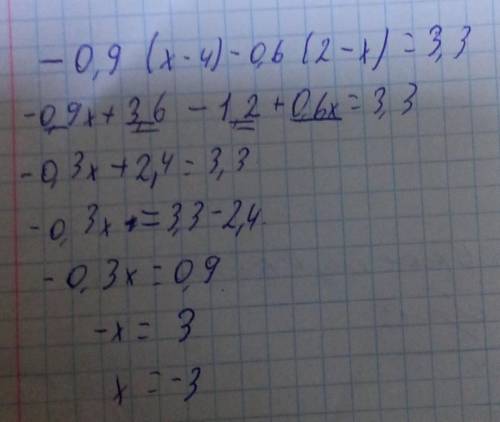 -0,9 (x-4)-0,6 (2-x) = 3,3
-0,9x+3,6 -1,2 +0,6x= 3,3
-0,3x+2,4=3,3
-0,3x =3,3-2,4
-0,3x=0,9
-x= 3
x =-3